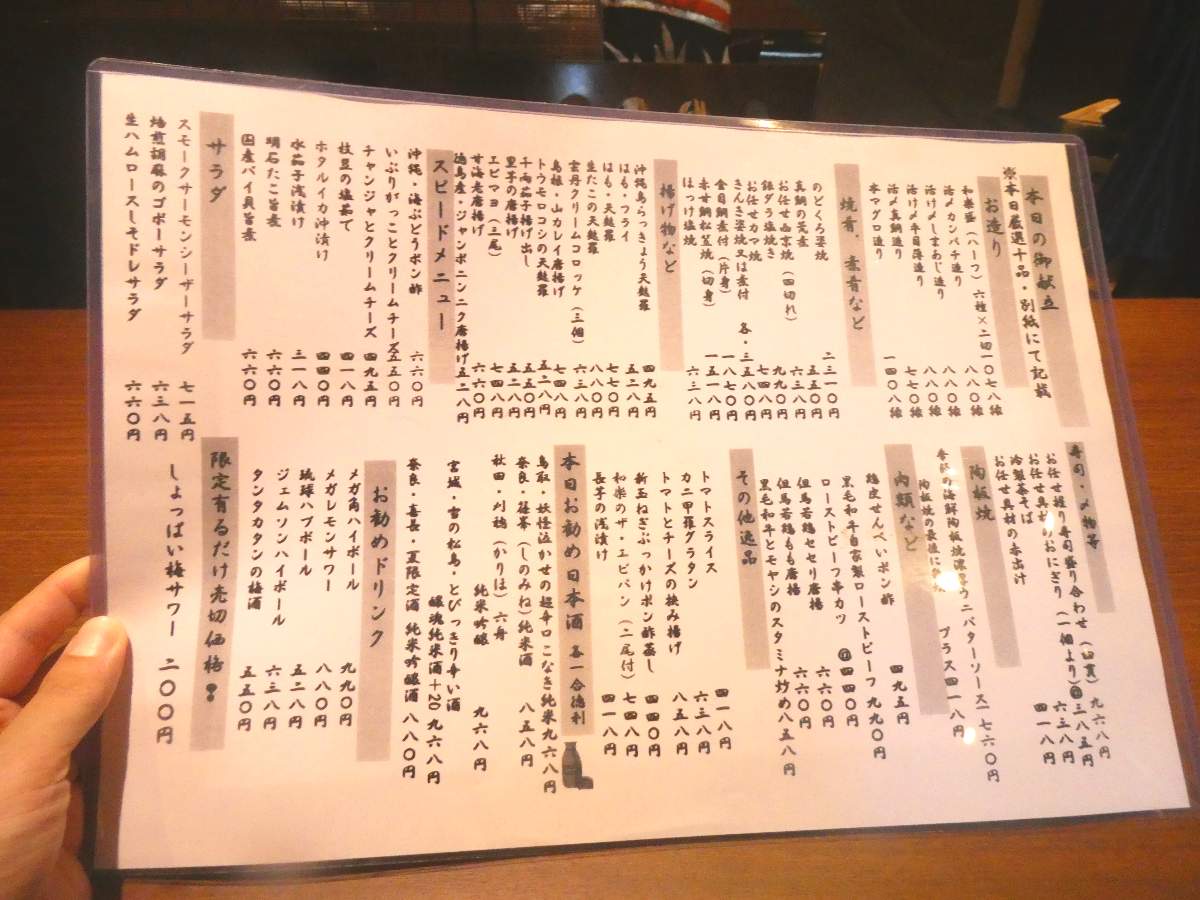 本日の御献立
※本日厳選十品・別紙にて記載
お造り
和楽盛(ハーフ) 六種×二切 一〇七八円
活〆カンパチ造り 八八〇円
活け〆しまあじ造り 八八〇円
活け〆平目薄造り 七七〇円
活〆真鯛造り 八八〇円
本マグロ造り 一四〇八円
焼肴、煮肴など
のどぐろ姿焼 二三一〇円
真鯛の荒煮 六三八円
お任せ西京焼(四切れ) 九九〇円
銀ダラ塩焼き 八五八円
お任せカマ焼 七四八円
きんき姿焼又は煮付 各・三五八〇円
金目鯛煮付(片身) 一八七〇円
赤甘鯛松笠焼(切身) 一五一八円
ほっけ塩焼 六三八円
揚げ物など
沖縄島らっきょう天麩羅 四九五円
はも・フライ 五二八円
はも・天麩羅 六六〇円
生たこの天麩羅 八八〇円
雲丹クリームコロッケ(三個)
島根・山カレイ唐揚げ 七四八円
トウモロコシの天麩羅 五二八円
千両茄子揚げ出し 五五〇円
里芋の唐揚げ 五二八円
エビマヨ(三尾) 七四八円
甘海老唐揚げ 六六〇円
徳島産・ジャンボニンニク唐揚げ 五二八円
スピードメニュー
沖縄・海ぶどうポン酢 六六〇円
いぶりがっことクリームチーズ 五五〇円
チャンジャとクリームチーズ 四九五円
枝豆の塩茹で 四一八円
ホタルイカ沖漬け 四四〇円
水茄子浅漬け 三一八円
明石たこ旨煮 六六〇円
国産バイ貝旨煮 六六〇円
サラダ
スモークサーモンシーザーサラダ 七一五円
焙煎胡麻のゴボーサラダ 六三八円
生ハムロースしそドレサラダ 六六〇円
寿司・〆物等
お任せ握り寿司盛り合わせ(五貫) 九六八円
お任せ具材のおにぎり(一個より)@三八五円
冷製茶そば 六三八円
お任せ具材の本出汁 四一八円
陶板焼
季節の海鮮陶板焼濃厚ウニバターソース 一七六〇円
陶板焼の最後に プラス四一八円
肉類など
鶏皮せんべいポン酢 四九五円
黒毛和牛自家製ローストビーフ 九九〇円
ローストビーフ串カツ @四四〇円
但馬若鶏セセリ唐揚 六六〇円
但馬若鶏もも唐揚 六六〇円
黒毛和牛とモヤシのスタミナ炒め 八五八円
その他逸品
トマトスライス 四一八円
カニ甲羅グラタン 六三八円
トマトとチーズの挟み揚げ 八五八円
新玉ねぎぶっかけポン酢蒸し 四四〇円
和楽のザ・エビパン(二尾付) 七四八円
長芋の浅漬け 四一八円
本日お勧め日本酒 各一合徳利
鳥取・妖怪泣かせの超辛口 こなき純米 九六八円
奈良・篠峯(しのみね)純米酒 八五八円
秋田・刈穂(かりほ)六舟
純米吟醸 九六八円
宮城・雪の松島・とびっきり辛い酒
醸魂純米酒+20 九六八円
奈良・喜長・夏限定酒 純米吟醸酒 八八〇円
お勧めドリンク
メガ角ハイボール 九九〇円
メガレモンサワー 八八〇円
琉球ハブボール 五二八円
ジェムソンハイボール 六三八円
タンタカタンの梅酒 五五〇円
限定有るだけ売切価格!
しょっぱい梅サワー 二〇〇円